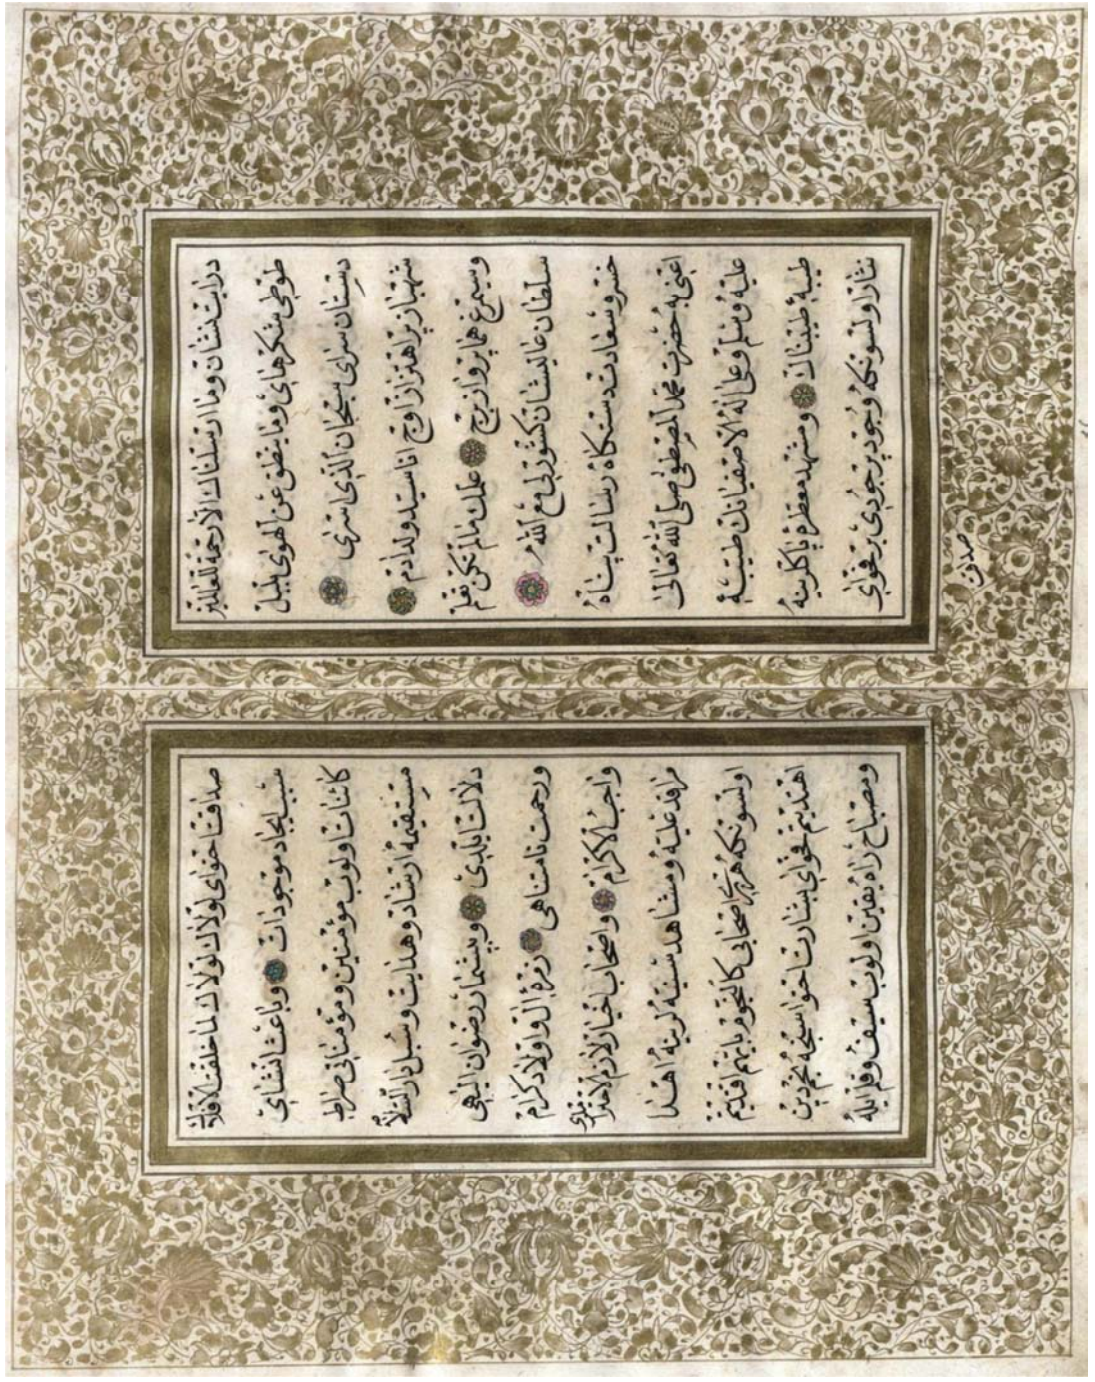 درایت نشان وما ارسلناك الا رحمة للعالمین
طوطئ شكرخای وما ینطق عن الهوى بلبل
دستان سرای سبحان الذی اسرى
شهباز پر اهتزاز اوج انا سید ولد ادم
وسیمرغ هما پرواز برج علمك مالم تكن تعلم
سلطان عالیشان كشور لی مع الله
خسرو سعادت دستكاه رسالت پناه
اعنی به حضرت محمد المصطفى صلى الله تعالى
علیه وسلم وعلى اله الاصفیانك طیبه
طیبهٔ طیبناك ومشهد معطرهٔ پاكلرینه
نثار اولسونكه وجود پرجودی برفحوای
صداقت احتوای لولاك لولاك لما خلقت الافلاك
سبب ایجاد موجودات وباعث انشای
كائنات اولوب مؤمنین ومؤمناتی صراط
مستقیمه ارشاد وهدایت وسبل دار السلامه
دلالت ایلدی وبیشمار رضوان الهی
ورحمت نامتناهی زمرهٔ ال واولاد كرام
واجب الاكرام واصحاب اخیار لازم
مراقد علیه ومشاهد سنیه لرینه اهدا
اولسونكه هر بری اصحابی كالنجوم بایهم اقتدیتم
اهتدیتم فحوای بشارت احتواسنجه نجم دین
ومصباح راه یقین اولوب سیف وقلم ایله